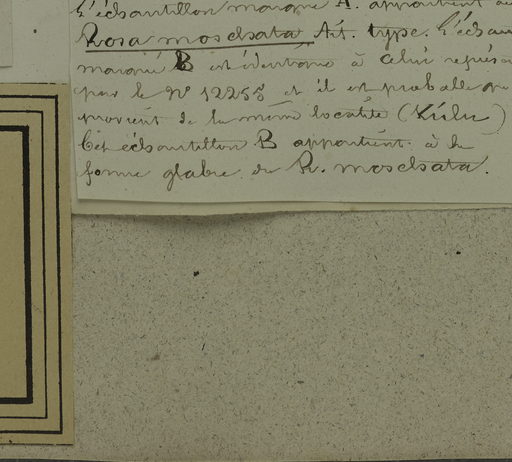 L'échantillon marqué A. appartient au
Rosa moschata Ait. type. L'échan
marqué B est identique à celui représen
par le No 12255 et il est probable qu
provient de la même localité (Kulu)
Cet échantillon B appartient à la
forme glabre du R. moschata.